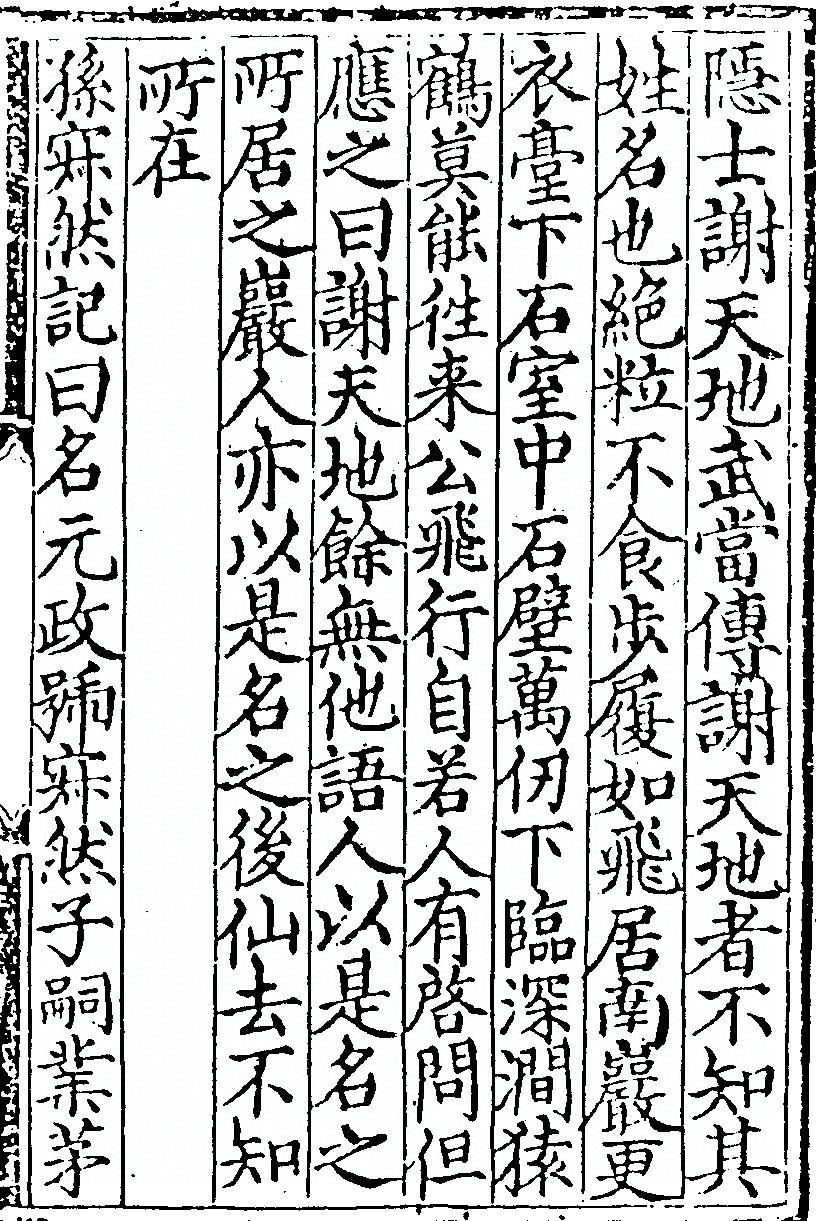 隱士謝天地武當傳謝天地者不知其
姓名也絕粒不食步履如飛居南巖更
衣臺下石室中石壁萬仞下臨深澗猿
鶴莫能徃来公飛行自若人有啓問但
應之曰謝天地餘無他語人以是名之
所居之巖人亦以是名之後仙去不知
所在
孫寂然記曰名元政號寂然子嗣業茅